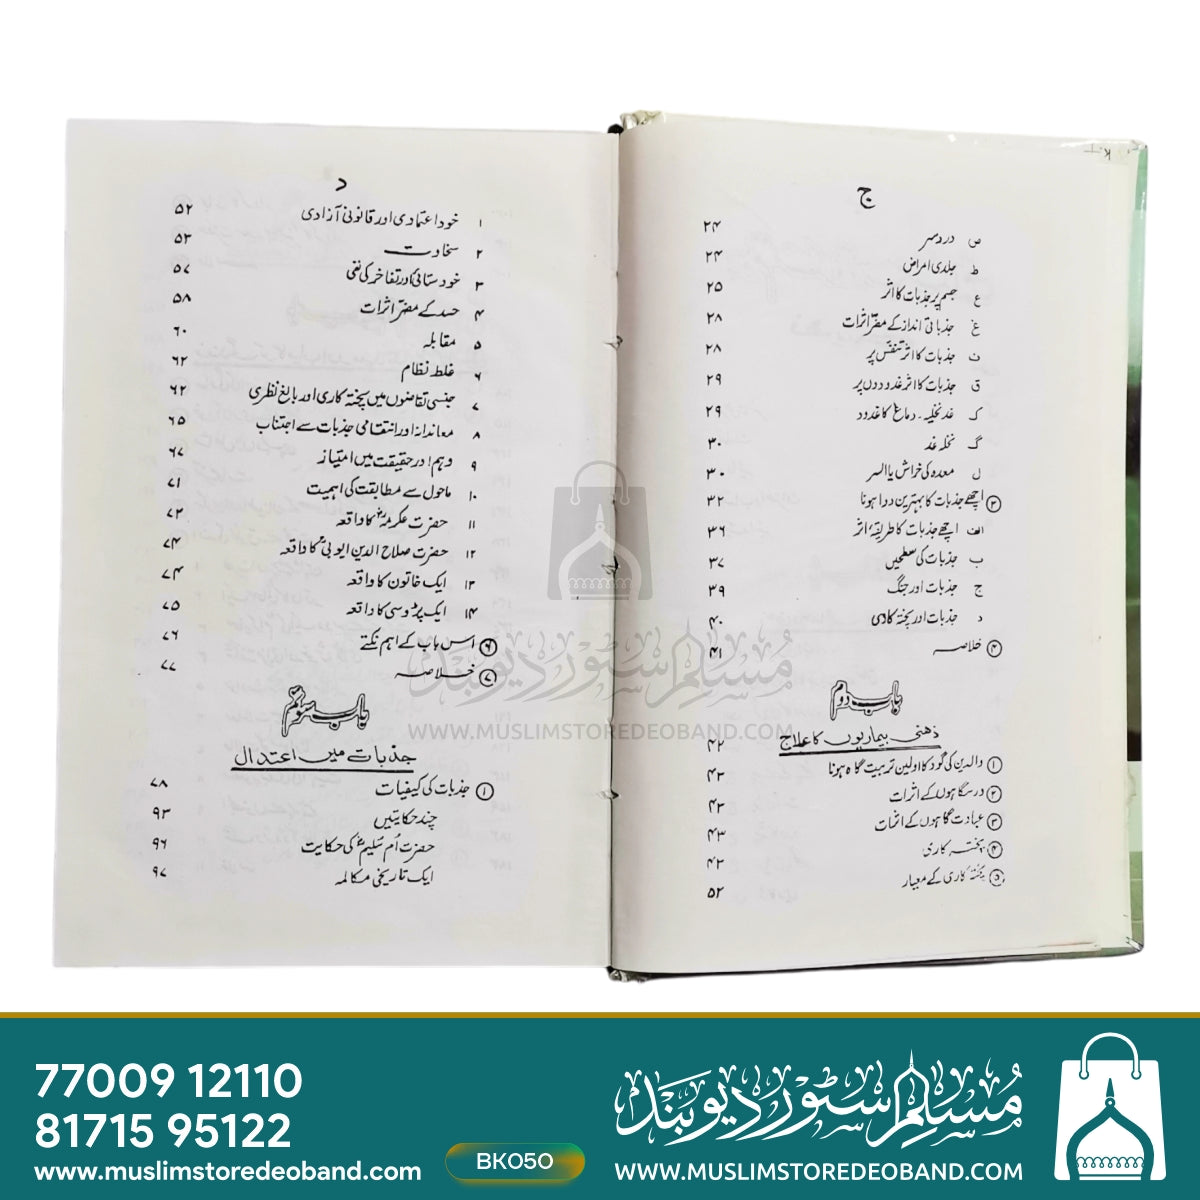 ج
ص دردسر ۲۴
ط جلدی امراض ۲۴
ع جسم پر جذبات کا اثر ۲۵
غ جذباتی انداز کے مضر اثرات ۲۸
ف جذبات کا اثر تنفس پر ۲۸
ق جذبات کا اثر غدودوں پر ۲۹
ک غدنخلیہ۔ دماغ کا غدود ۲۹
گ نخلہ غد ۳۰
ل معدہ کی خراش یا السر ۳۰
۳ اچھے جذبات کا بہترین دوا ہونا ۳۲
الف اچھے جذبات کا طریقۂ اثر ۳۶
ب جذبات کی سطحیں ۳۷
ج جذبات اور جنگ ۳۹
د جذبات اور پختہ کادی ۴۰
۴ خلاصہ ۴۱
باب دوم
ذہنی بیماریوں کا علاج ۴۲
۱ والدین کی گود کا اولین تربیت گاہ ہونا ۴۳
۲ درسگاہوں کے اثرات ۴۳
۳ عبادت گاہوں کے اثرات ۴۳
۴ پختہ کاری ۴۲
۵ پختہ کاری کے معیار ۵۲
د
۱ خود اعتمادی اور قانونی آزادی ۵۲
۲ سخاوت ۵۳
۳ خودستائی اور تفاخر کی نفی ۵۷
۴ حسد کے مضر اثرات ۵۸
۵ مقابلہ ۶۰
۶ غلط نظام ۶۲
۷ جنسی تقاضوں میں پختہ کاری اور بالغ نظری ۶۲
۸ معاندانہ اور انتقامی جذبات سے اجتناب ۶۵
۹ وہم اور حقیقت میں امتیاز ۶۷
۱۰ ماحول سے مطابقت کی اہمیت ۷۱
۱۱ حضرت عکرمہؓ کا واقعہ ۷۳
۱۲ حضرت صلاح الدین ایوبیؒ کا واقعہ ۷۴
۱۳ ایک خاتون کا واقعہ ۷۴
۱۴ ایک پڑوسی کا واقعہ ۷۵
۶ اس باب کے اہم نکتے ۷۶
۷ خلاصہ ۷۷
باب سوئم
جذبات میں اعتدال
۱ جذبات کی کیفیات ۷۸
چند حکایتیں ۹۳
حضرت اُم سلیمؓ کی حکایت ۹۶
ایک تاریخی مکالمہ ۹۷
مُسلم سٹور دیوبند
WWW.MUSLIMSTOREDEOBAND.COM
77009 12110
81715 95122
www.muslimstoredeoband.com
BK050
مُسلم سٹور دیوبند
WWW.MUSLIMSTOREDEOBAND.COM